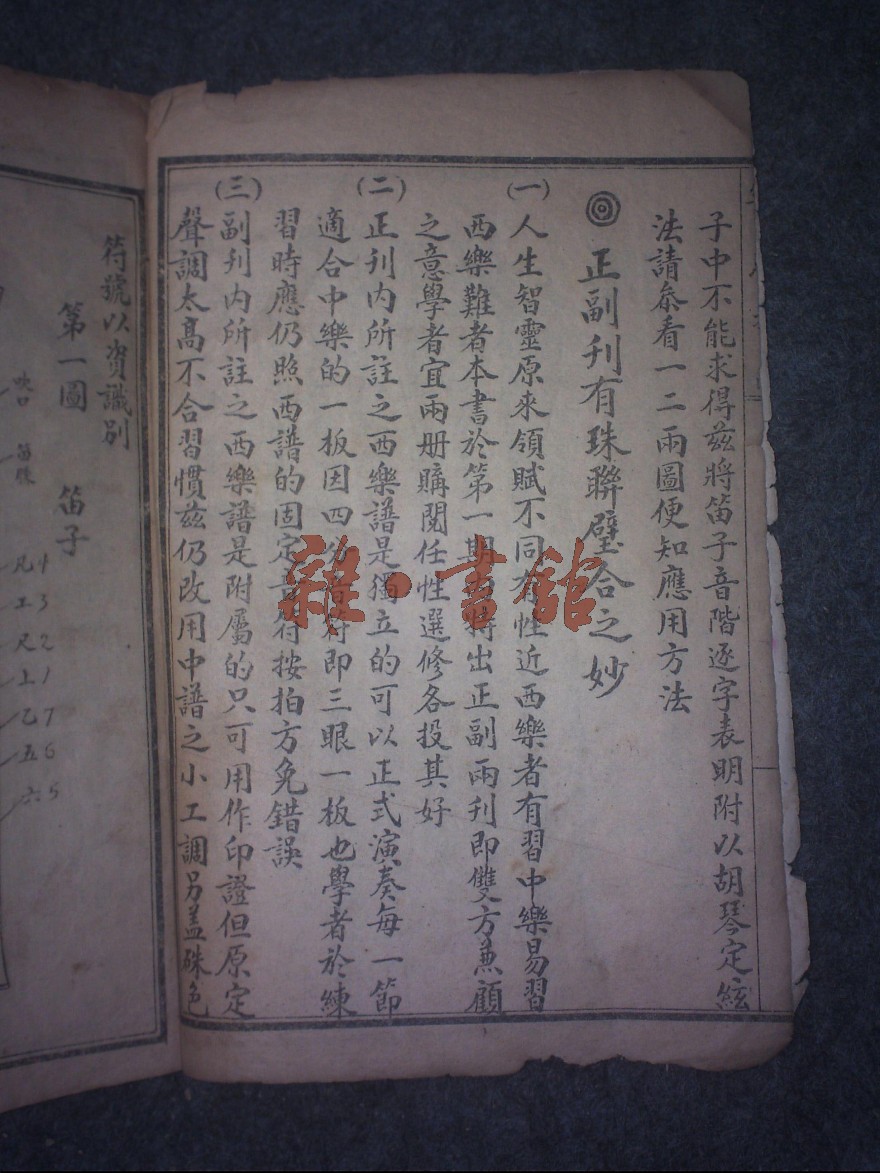 子中不能求得茲將笛子音階逐字表明附以胡琴定絃
法請叅看一二兩圖便知應用方法
◎ 正副刋有珠聯璧合之妙
(一) 人生智靈原來領賦不同有性近西樂者有習中樂易習
西樂難者本書於第一期 特出正副兩刋即雙方兼顧
之意學者宜兩册購閱任性選修各投其好
(二) 正刋內所註之西樂譜是獨立的可以正式演奏每一節
適合中樂的一板因四分音符即三眼一板也學者於練
習時應仍照西譜的固定音符按拍方免錯誤
(三) 副刋內所註之西樂譜是附屬的只可用作印證但原定
聲調太高不合習慣茲仍改用中譜之小工調另盖硃色
符號以資識別
第一圖 笛子
吹口
笛膜
凡 4
工 3
尺 2
上 1
乙 7
五 6
六 5
雜·書館